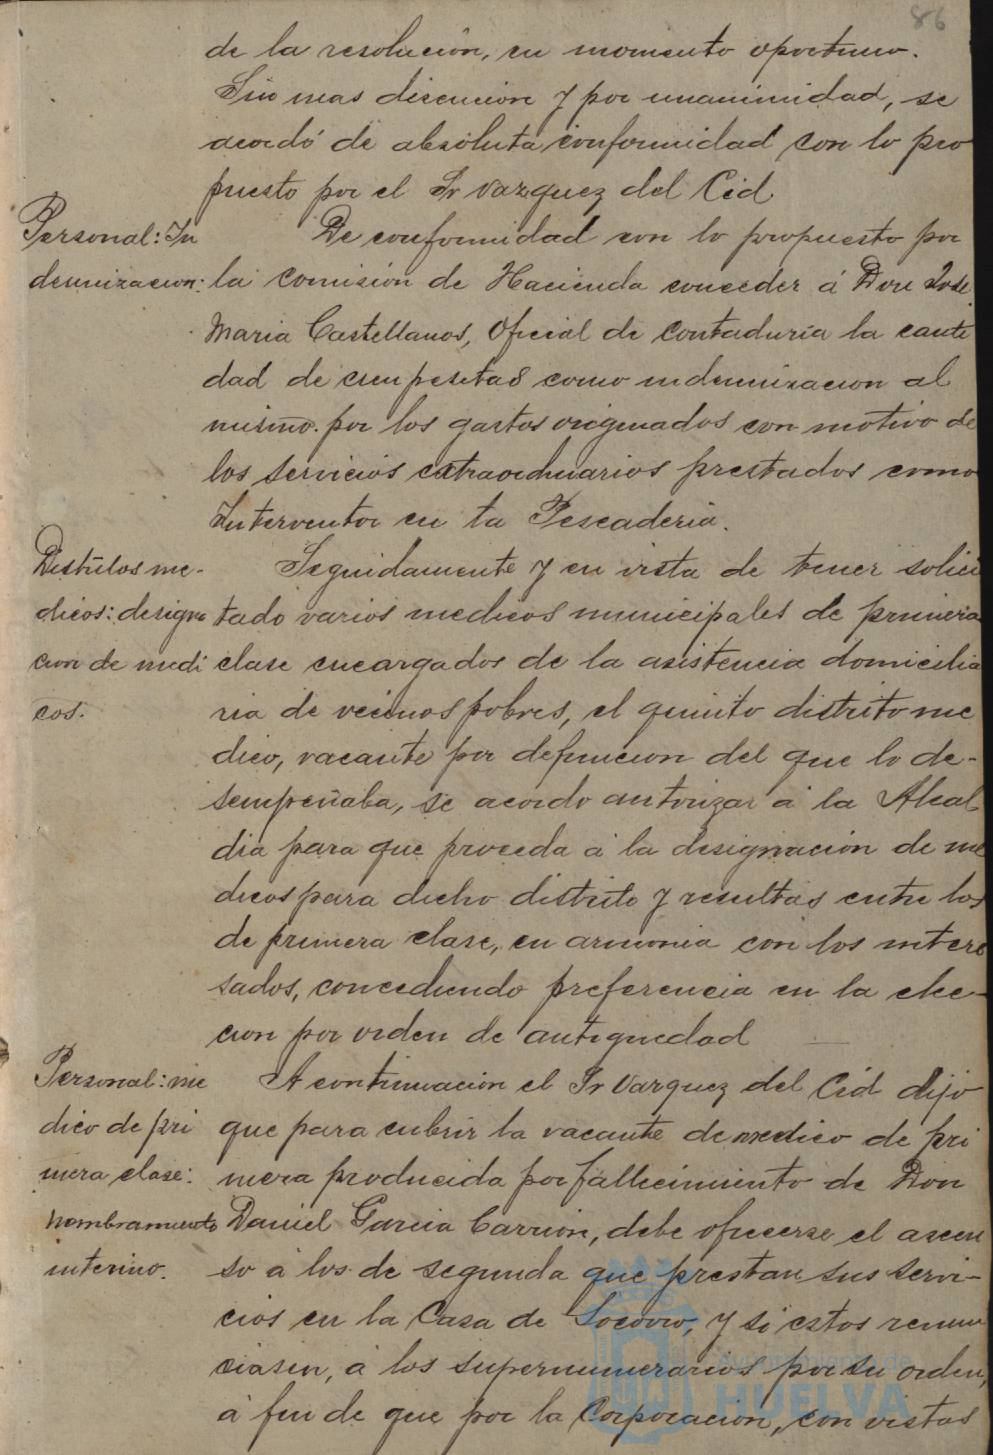 86
de la resolución, en momento oportuno.
Sin mas discusion y por unanimidad, se
acordó de absoluta conformidad con lo pro
puesto por el Sr Vazquez del Cid
Personal: In
demnizacion:
De conformidad con lo propuesto por
la comisión de Hacienda conceder á Don José
Maria Castellanos, Oficial de Contaduría la canti
dad de cien pesetas como indemnizacion al
mismo por los gastos originados con motivo de
los servicios extraordinarios prestados como
Interventor en la Pescaderia.
Distritos me-
dicos: designa
cion de medi
cos.
Seguidamente y en vista de tener solici
tado varios medicos municipales de primera
clase encargados de la asistencia domicilia
ria de vecinos pobres, el quinto distrito me
dico, vacante por defuncion del que lo de-
sempeñaba, se acordo autorizar á la Alcal
dia para que proceda á la designación de me
dicos para dicho distrito y resultas entre los
de primera clase, en armonia con los intere
sados, concediendo preferencia en la elec-
cion por orden de antiguedad
Personal: me
dico de pri
mera clase:
nombramiento
interino.
A continuacion el Sr Vazquez del Cid dijo
que para cubrir la vacante de medico de pri
mera producida por fallecimiento de Don
Daniel Garcia Carrión, debe ofrecerse el ascen
so á los de segunda que prestan sus servi-
cios en la Casa de Socorro, y si estos renun
ciasen, á los supernumerarios por su orden,
á fin de que por la Corporacion, con vistas
Ayuntamiento de
HUELVA